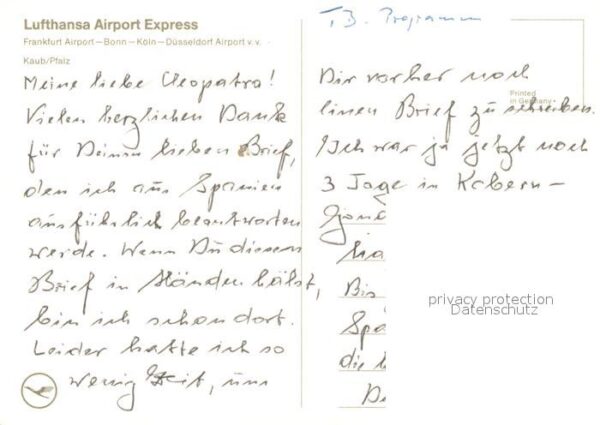 Lufthansa Airport Express
Frankfurt Airport–Bonn–Köln–Düsseldorf Airport v.v.
Kaub/Pfalz
Meine liebe Cleopatra!
Vielen herzlichen Dank
für Deinen lieben Brief,
den ich aus Spanien
ausführlich beantworten
werde. Wenn Du diesen
Brief in Händen hälst,
bin ich schon dort.
Leider hatte ich so
wenig Zeit, um
T3. Programm
Dir vorher noch
Printed
in Germany
einen Brief zu schreiben.
Ich war ja jetzt noch
3 Tage in
Bis
Spa
die
privacy protection
Datenschutz